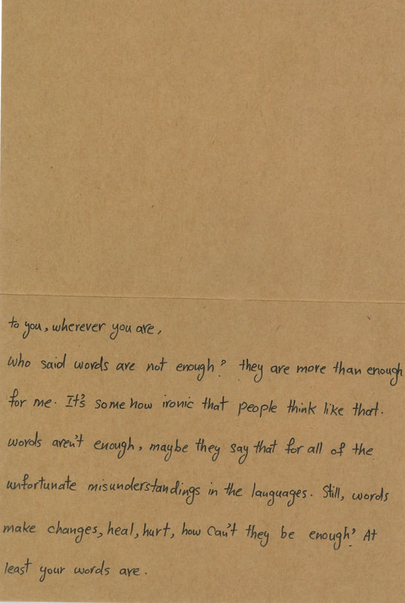 to you, wherever you are,
who said words are not enough? they are more than enough
for me. It's some how ironic that people think like that.
words aren't enough, maybe they say that for all of the
unfortunate misunderstandings in the languages. Still, words
make changes, heal, hurt, how can't they be enough? At
least your words are.